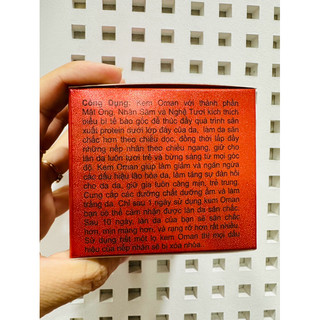 Công Dụng: Kem Oman với thành phần
Mật Ong, Nhân Sâm và Nghệ Tươi kích thích
siêu bì tế bào gốc để thúc đẩy quá trình sản
xuất protein dưới lớp đáy của da, làm da săn
chắc hơn theo chiều dọc, đồng thời lấp đầy
những nếp nhăn theo chiều ngang, giữ cho
làn da luôn tươi trẻ và bừng sáng từ mọi góc
độ. Kem Oman giúp làm giảm và ngăn ngừa
các dấu hiệu lão hóa da, làm tăng sự đàn hồi
cho da da, giữ gìa luôn căng mịn, trẻ trung.
Cung cấp các dưỡng chất dưỡng ẩm và làm
trắng da. Chỉ sau 1 ngày sử dụng kem Oman
bạn có thể cảm nhận được làn da săn chắc.
Sau 10 ngày, làn da của bạn sẽ săn chắc
hơn, mềm mại hơn, và rạng rỡ hơn rất nhiều.
Sử dụng hết một lọ kem Oman thì mọi dấu
hiệu của nếp nhăn sẽ bị xóa nhòa.